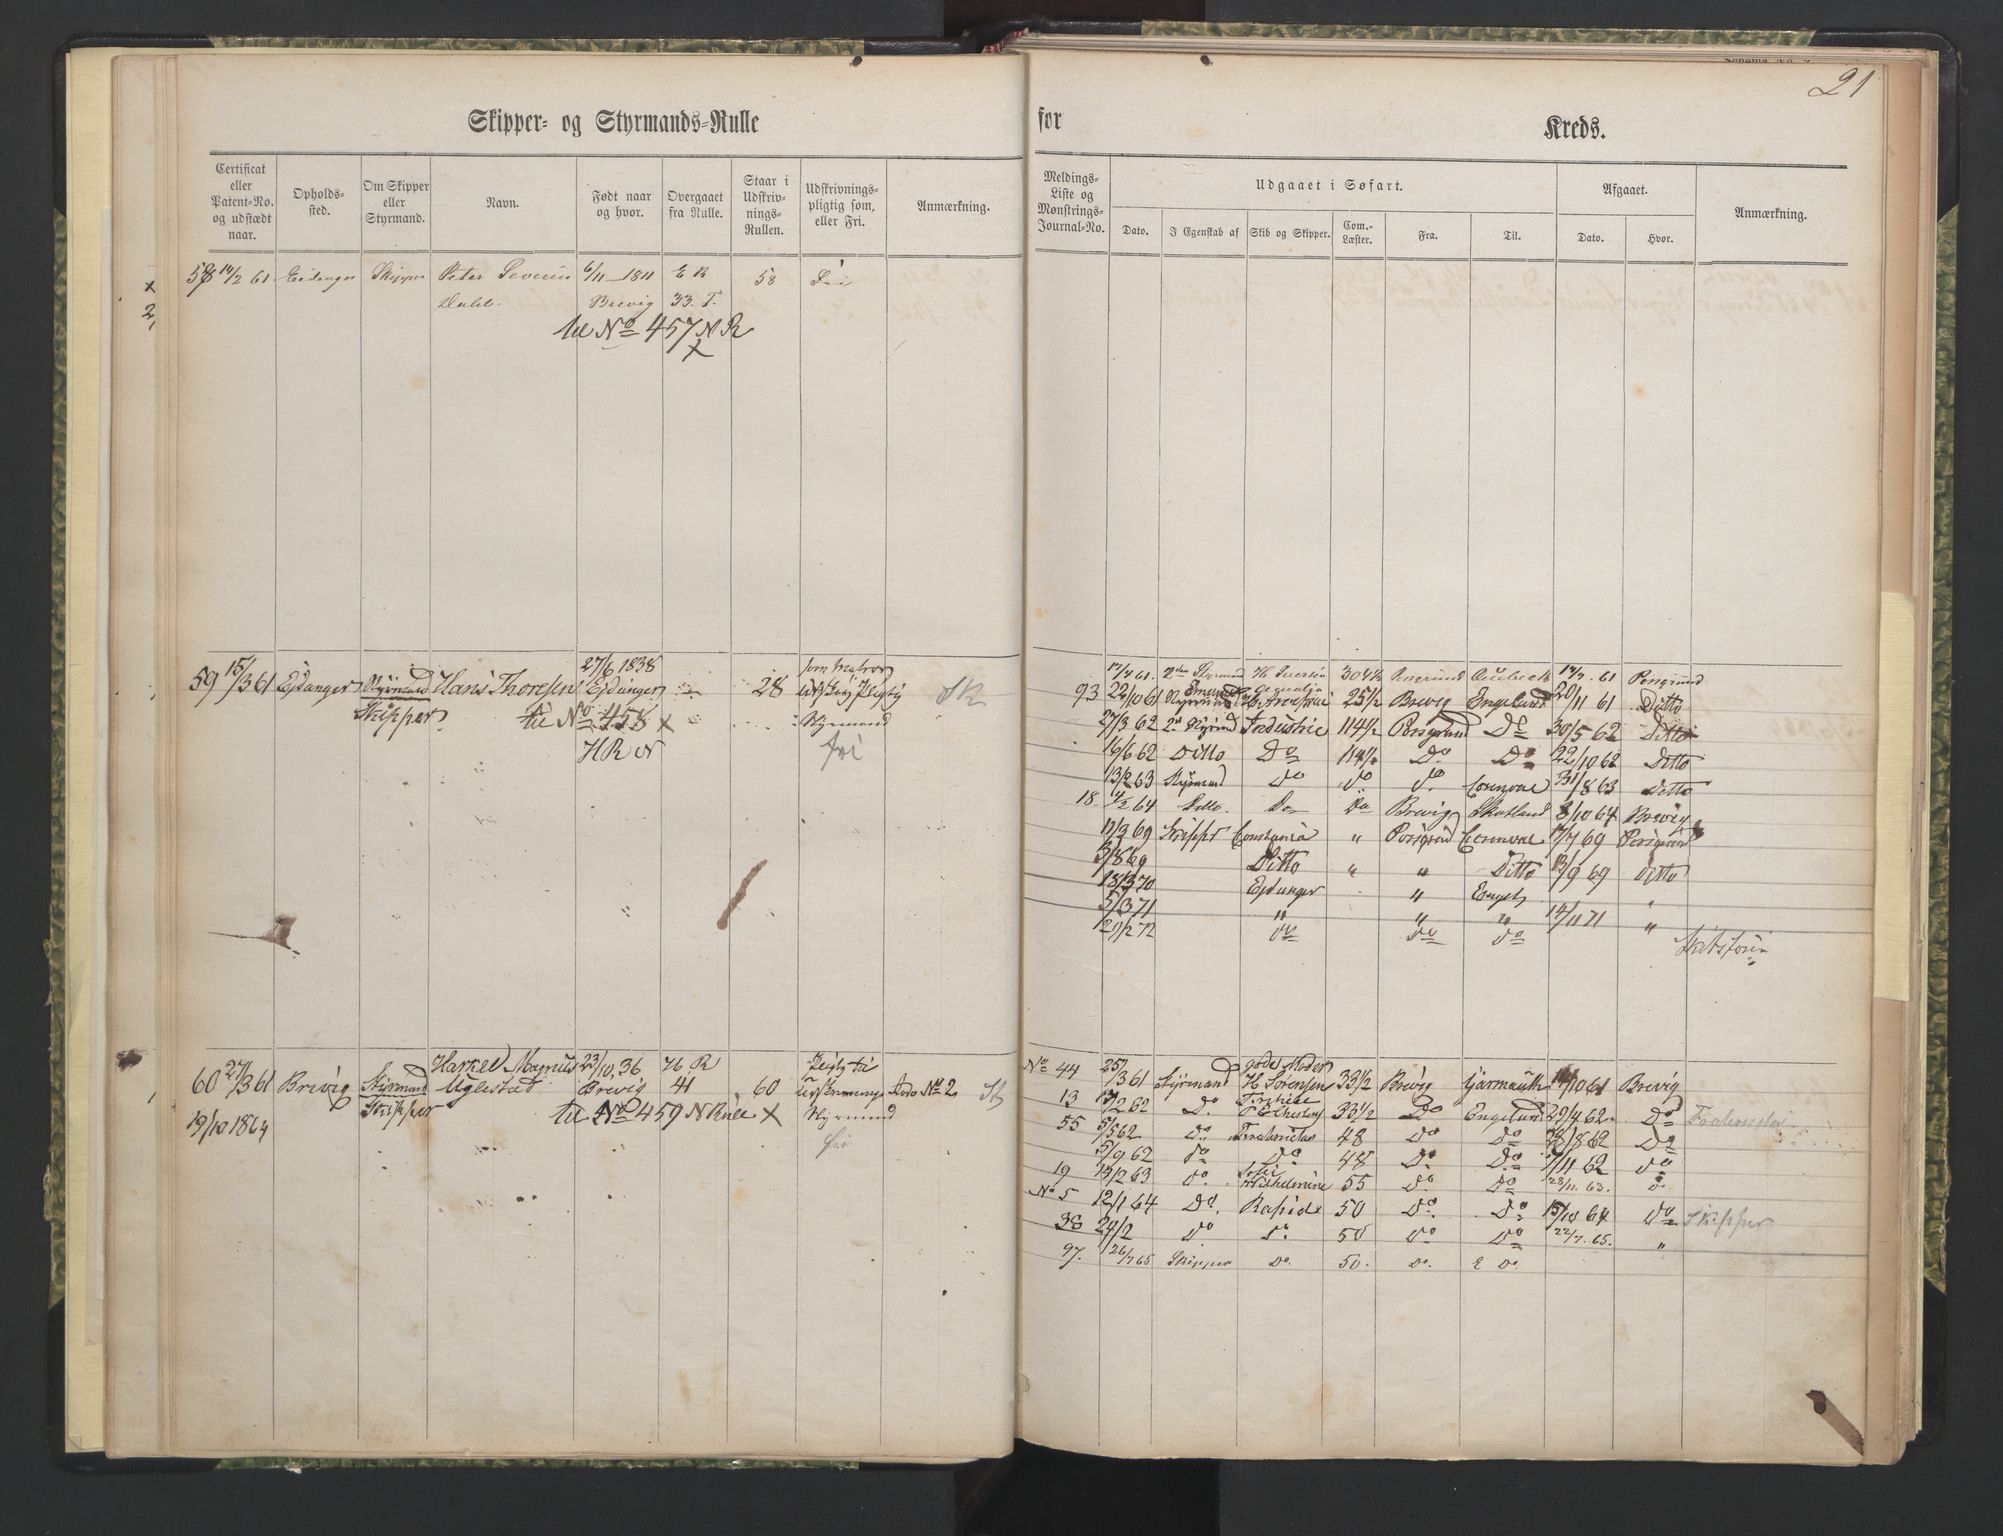 21
Skipper- og Styrmands-Rulle for Kreds.
Certificat eller Patent-No. og udstædt naar.
Opholds-sted.
Om Skipper eller Styrmand.
Navn.
Født naar og hvor.
Overgaaet fra Rulle.
Staar i Udskriv-nings-Rullen.
Udskrivnings-pligtig som, eller Fri.
Anmærkning.
Meldings-Liste og Mønstrings-Journal-No.
Udgaaet i Søfart.
Dato.
I Egenskab af
Skib og Skipper.
Com.-Læster.
Fra.
Til.
Afgaaet.
Dato.
Hvor.
Anmærkning.
58 14/2 61 Eidanger Skipper Peter Severin 6/11 1811 E R 58 Fri
Dahl. Brevig 33. T.
til No 457 N R
X
59 15/3 61 Ejdanger Styrmand Hans Thoresen 27/6 1838 Ejdanger 28
Skipper til No 458 X Styrmand
H R N fri
17/4 61. 2den Styrmand 304½ Lübeck 14/7. 61 Porsgrund
93 22/10 61 Styrmand 25½ Brevig Engeland 20/11 61 Ditto
27/3 62 2n Styrmd Industrie 114½ Porsgrund Do 30/5 62 Ditto
16/6 62 Ditto Do 114½ Do Do 22/10 62 Ditto
13/2 63 Styrmand do do do 31/8 63 Ditto
18. 4/2 64 Ditto. Do Do Brevig Skotland 8/10 64 Brevig
11/3 69 Skipper Constania " Porsgrund 17/7 69 Porsgrund
3/8 69 Ditto " " Ditto 13/9 69 Ditto
18/3 70 Ejdanger " Engel "
5/3 71 " " " 14/11 71 "
29/2 72 do do do
60 27/3 61 Brevig Styrmand Harkel Magnus 23/10, 36 H. R
Skipper Uglestad Brevig 41 60 No 2
19/10 1864 til No 459 N Rulle X Styrmand
fri
No 44 25/3 61 Styrmand gode Moder H Sorensen 33½ Brevig Yarmouth 10/10 61 Brevig
13 17/2 62 Do. 33½ Do Engeland 29/4 62. Do
55 5/5 62 do. Fraternitas 48 do do 28/8 62 Do
5/9 62 do Do 48 Do Do 7/11 62 do
19 14/2 63 do. Sofie Wilhelmine 55 do. Do 28/11. 63. o
No 5 12/1 64 Do. Rapid 50 Do. Do 15/10 64 Do Skipper
38 24/2 do do 50 do do 22/7. 65. "
97. 26/7 65 Skipper Do. 50. Do. E Do.